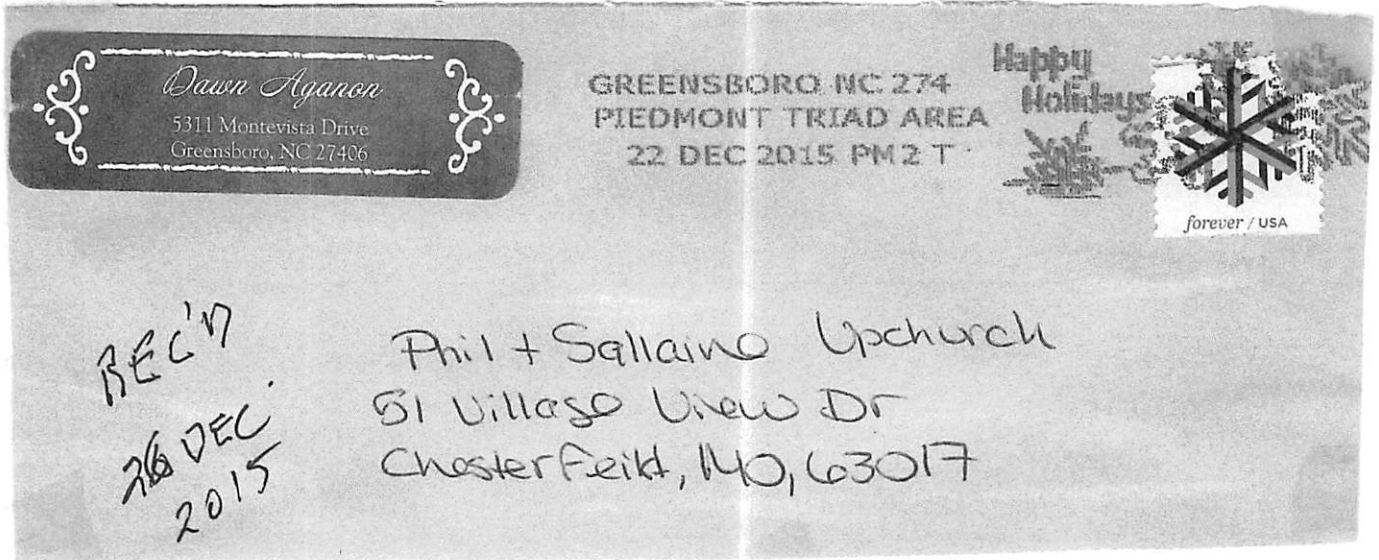 Dawn Aganon
5311 Montevista Drive
Greensboro, NC 27406
GREENSBORO NC 274
PIEDMONT TRIAD AREA
22 DEC 2015 PM 2 T
Happy
Holidays
forever / USA
REC'D
26 DEC.
2015
Phil + Sallaine Upchurch
51 Village View Dr
Chesterfeild, MO, 63017